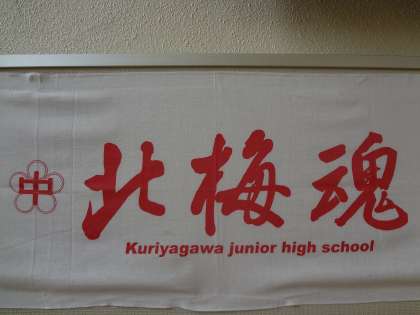 中
北梅魂
Kuriyagawa junior high school